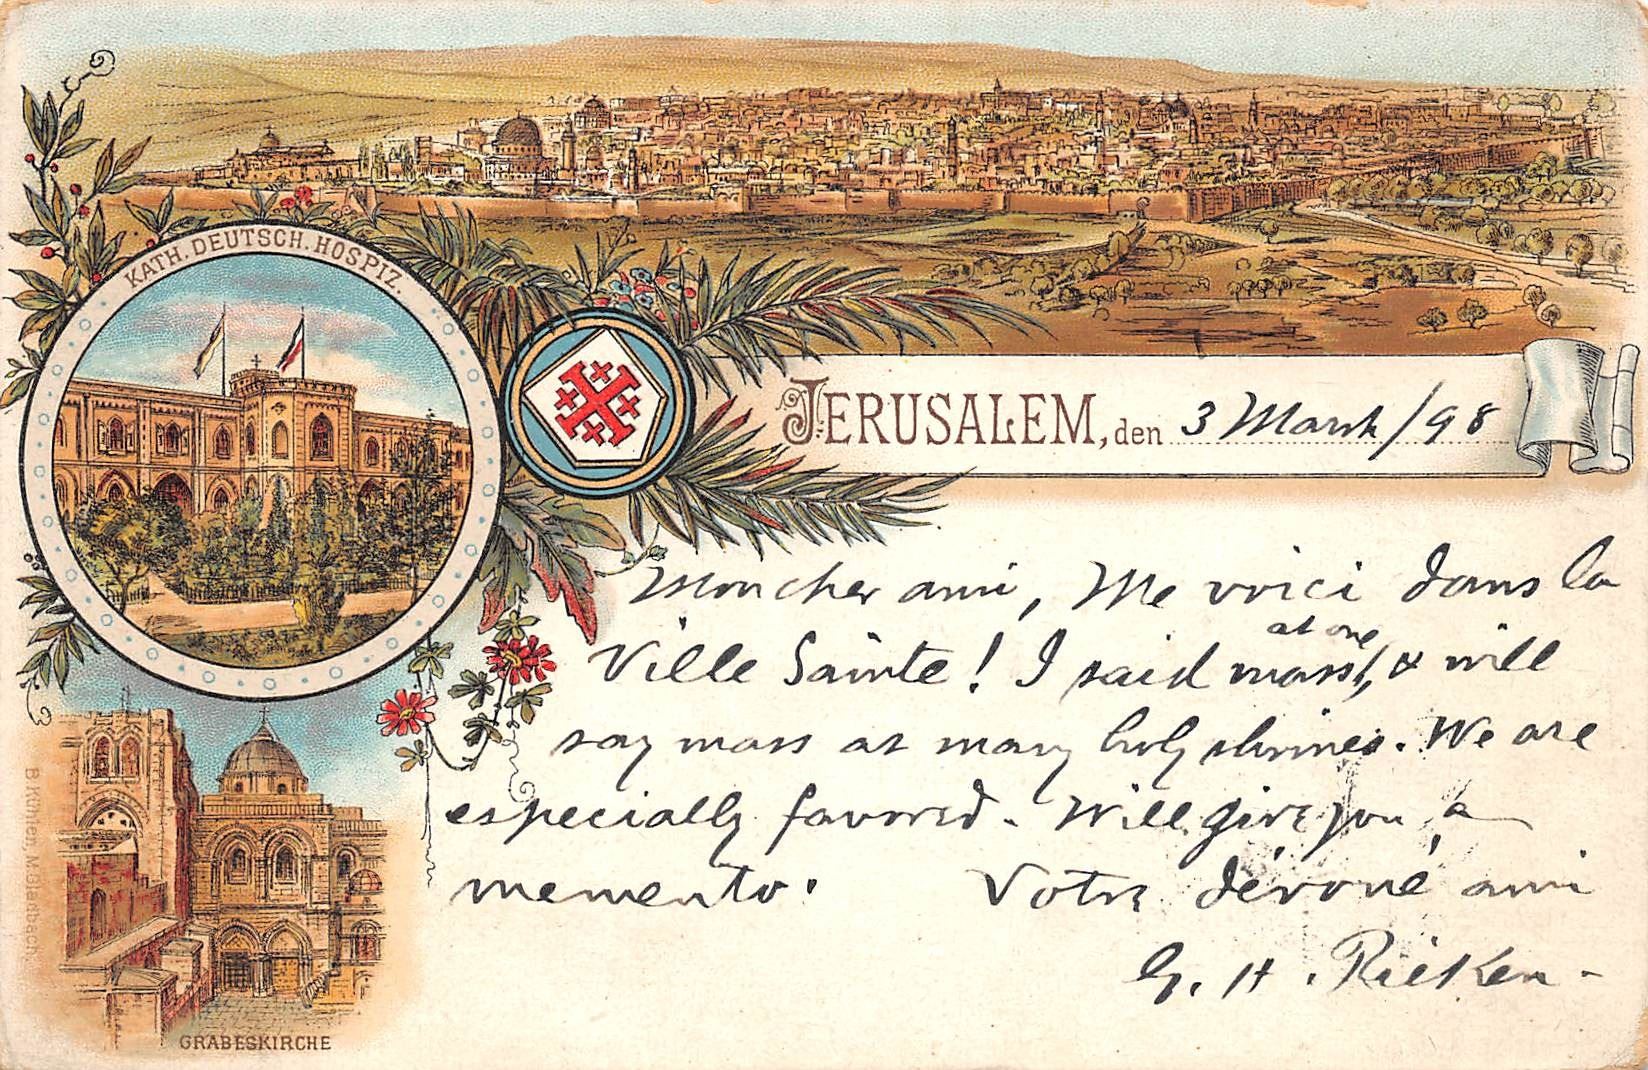 KATH. DEUTSCH. HOSPIZ.
JERUSALEM, den 3 March/98
Mon cher ami, Me voici dans la
Ville Sainte! I said mass at one, & will
say mass at many holy shrines. We are
especially favored. Will give you a
memento. Votre dévoué ami
G. H. Rieken -
B. Kühlen, M.Gladbach.
GRABESKIRCHE